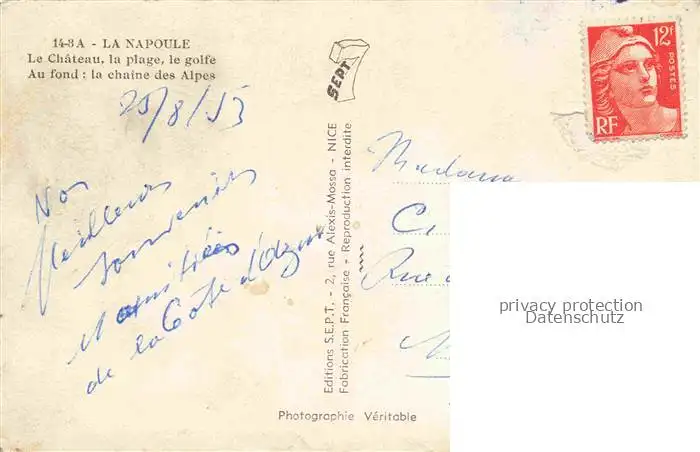 14-3 A - LA NAPOULE
Le Château, la plage, le golfe
Au fond : la chaîne des Alpes
25/8/53
Nos
Meilleurs
souvenirs
amitiés
de la Côte d'Azur
SEPT
Editions S.E.P.T. - 2, rue Alexis-Mossa - NICE
Fabrication Française - Reproduction interdite
Photographie Véritable
12F
POSTES
RF
Madame
Rue
privacy protection
Datenschutz